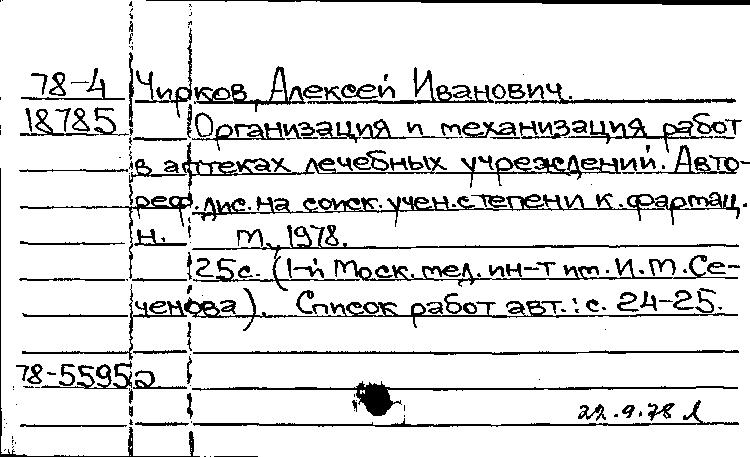 78-4 Чирков, Алексей Иванович.
18785 Организация и механизация работ
в аптеках лечебных учреждений. Авто-
реф. дис. на соиск. учен. степени к. фармац.
н. М., 1978.
25 с. (1-й Моск. мед. ин-т им. И. М. Се-
ченова). Список работ авт.: с. 24-25.
78-5595
22.9.78